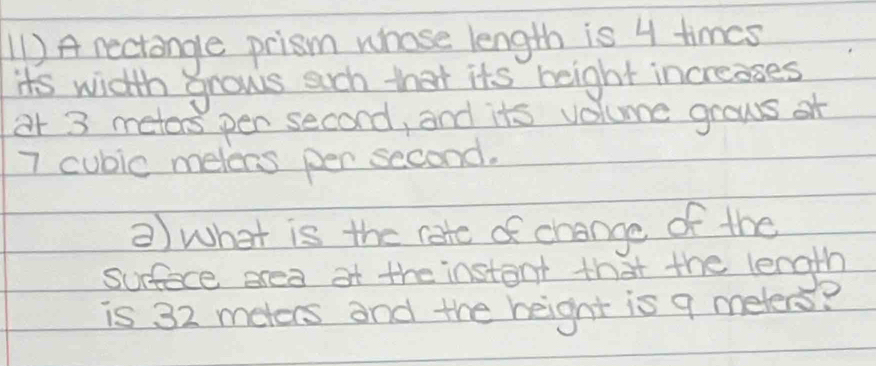 11) A rectangle prism whose length is 4 times
its width grows such that its height increases
at 3 meters per second, and its volume grows at
7 cubic meters per second.
a) What is the rate of change of the
surface area at the instant that the length
is 32 meters and the height is 9 meters?